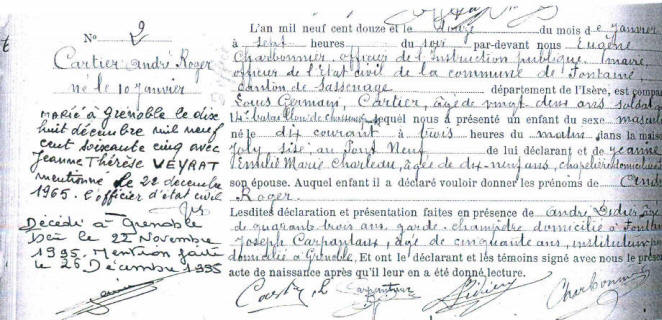 N° 2
Cartier André Roger
né le 10 janvier
MARIÉ à Grenoble le dix
huit décembre mil neuf
cent soixante cinq avec
Jeanne Thérèse VEYRAT
mentionné le 22 décembre
1965. l'officier d'état civil
Décédé à Grenoble
le 22 Novembre
1995. Mention faite
le 26 Décembre 1995
L'an mil neuf cent douze et le douze du mois de janvier
à sept heures du soir par-devant nous Eugène
Charbonnier, officier de l'Instruction publique, maire,
officier de l'État civil de la commune de Fontaine
canton de Sassenage département de l'Isère, est compa
Louis Germain, Cartier, âgé de vingt deux ans soldat
bataillon de chasseurs lequel nous a présenté un enfant du sexe mascul
né le dix courant à trois heures du matin dans la mais
Joly, sise au Pont Neuf de lui déclarant et de Jeanne
Emilie Marie Charleau, âgée de dix-neuf ans, chapelière
son épouse. Auquel enfant il a déclaré vouloir donner les prénoms de André
Roger.
Lesdites déclaration et présentation faites en présence de André Didier âgé
de quarante trois ans garde-champêtre domicilié à Fontaine
Joseph Carpantaux, âgé de cinquante ans, instituteur
domiciliés à Grenoble, Et ont le déclarant et les témoins signé avec nous le prése
acte de naissance après qu'il leur en a été donné lecture.
Didier Charbonnier